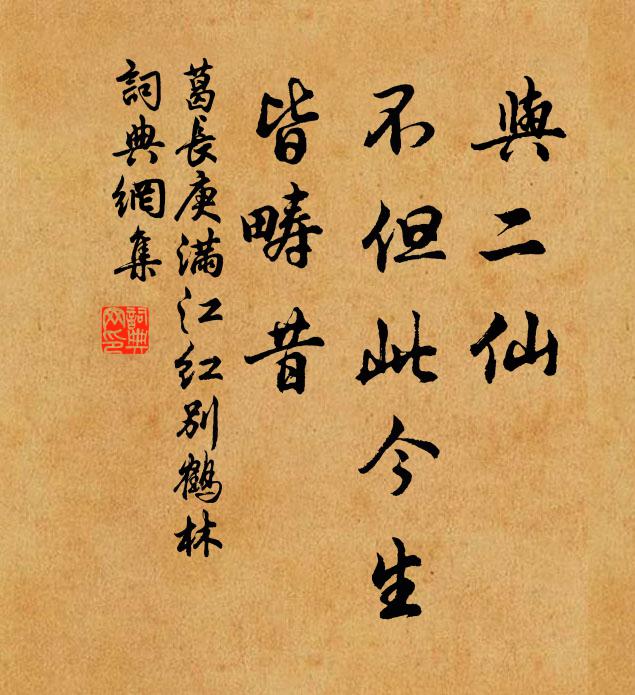 與二仙
不但此今生
皆疇昔
葛長庚滿江紅別鶴林
詞典網集
詞典網印